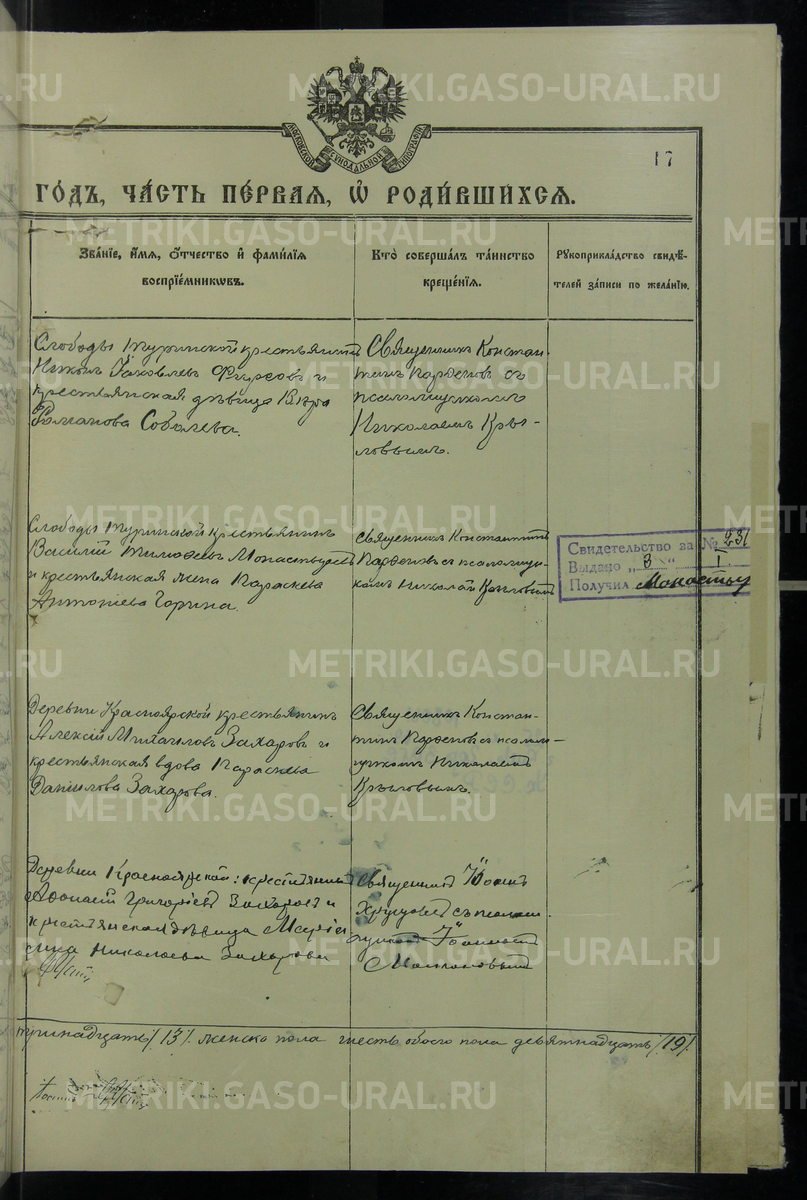 METRIKI.GASO-URAL.RU
МОСКОВСКОЙ СѴНОДАЛЬНОЙ ТИПОГРАФІИ
17
ГО́ДЪ, ЧА́СТЬ ПЕ́РВАЯ, Ѡ҆ РОДИ́ВШИХСЯ.
Зва́нїе, и҆́мя, ѻ҆́тчество и҆ фами́лїя
воспрїе́мникѡвъ.
Кто̀ соверша́лъ та́инство
креще́нїя.
Рꙋкоприкла́дство свидѣ́-
телей за́писи по жела́нїю.
Слободы Туринской крестьянинъ
Яковлевъ Фирсовъ и
крестьянская дѣвица Вѣра
Романова Соболева.
Священникъ Констан-
тинъ Парѳеновъ съ
псаломщикомъ
Николаемъ Кры-
ловымъ.
Слободы Туринской крестьянинъ
Василій Монастыревъ
и крестьянская жена Параскева
Антоніева Горина.
Священникъ Константинъ
Парѳеновъ съ псаломщи-
комъ Николай Крыловымъ
Свидетельство за № 231
Выдано „3“ I
Получил Монастыр
Деревни Красноярской крестьянинъ
Алексій Михаиловъ Захаровъ и
крестьянская вдова Параскева
Даніилова Захарова.
Священникъ Констан-
тинъ Парѳеновъ съ псалом-
щикомъ Николаемъ
Крыловымъ.
Деревни Красноярской: крестьянинъ
Аѳонасій Григоріевъ Захаровъ и
крестьянская дѣвица
Николаева Захарова
Священникъ Іоаннъ
съ псалом-
щикомъ Іоанномъ
тринадцать /13/ женска пола шесть обоего пола девятнадцать /19/